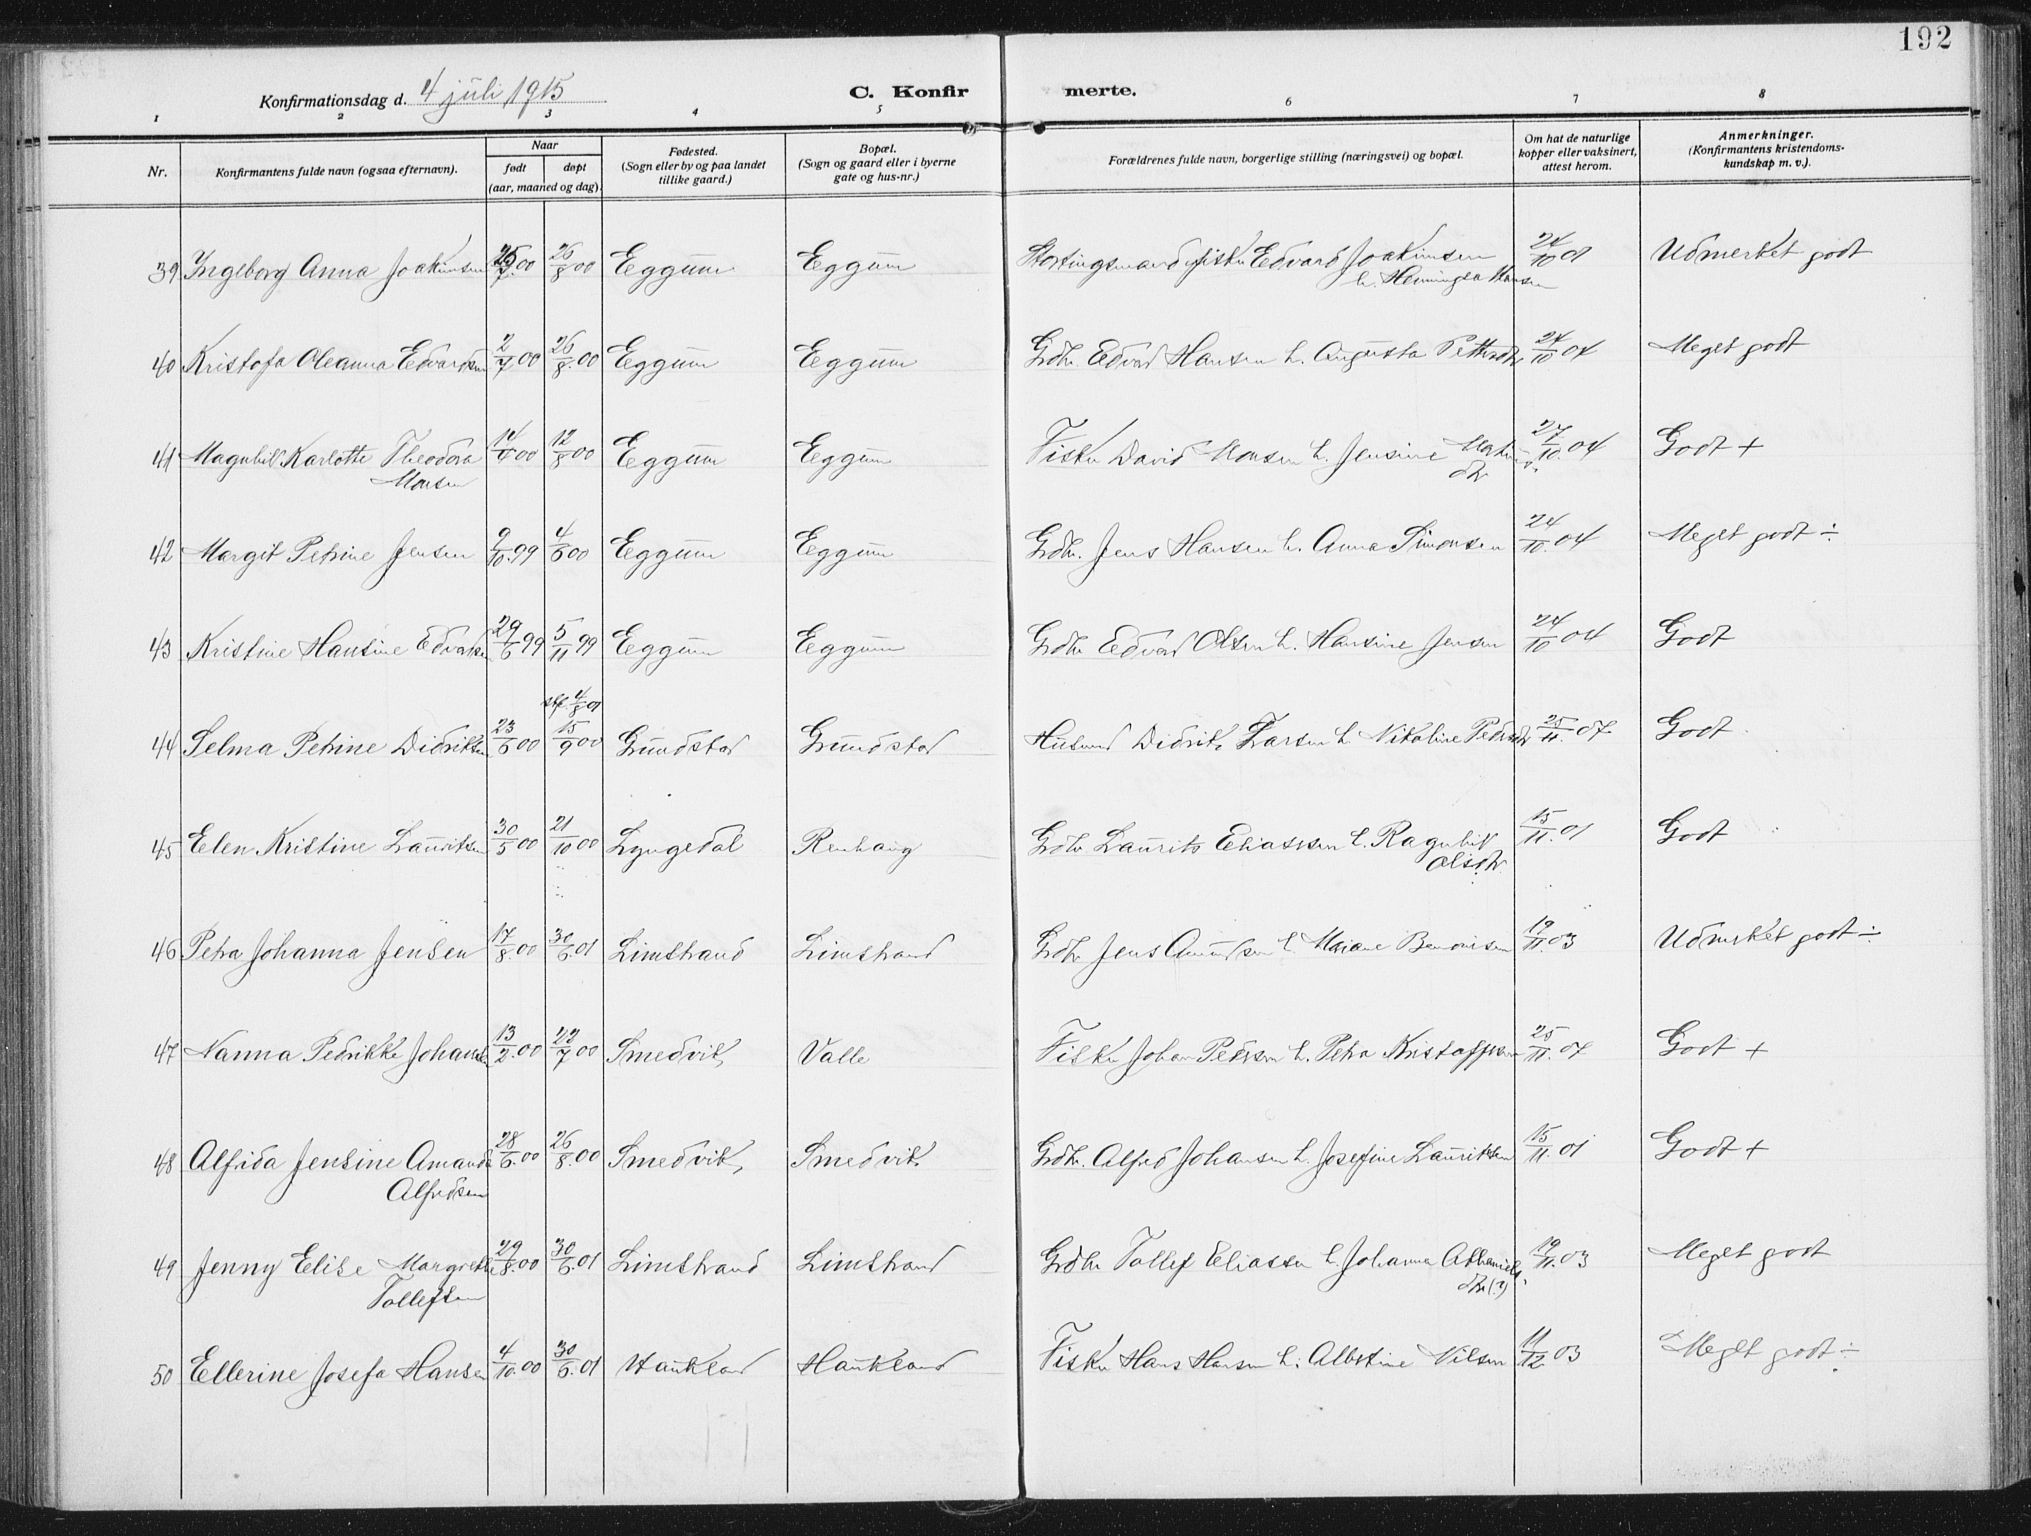 192
Konfirmationsdag d. 4 juli 1915
C. Konfirmerte.
1 2 3 4 5 6 7 8
Nr.
Konfirmantens fulde navn (ogsaa efternavn).
Naar
født døpt
(aar, maaned og dag).
Fødested.
(Sogn eller by og paa landet
tillike gaard.)
Bopæl.
(Sogn og gaard eller i byerne
gate og hus-nr.)
Forældrenes fulde navn, borgerlige stilling (næringsvei) og bopæl.
Om hat de naturlige
kopper eller vaksinert,
attest herom.
Anmerkninger.
(Konfirmantens kristendoms-
kundskap m. v.).
39 Ingeborg Anna Joakimsen 25/7.00 26/8 00 Eggum Eggum Stortingsmand fisker Edvard Joakimsen 24/10 01 Udmerket godt
h. Henningsa Hansen
40 Kristofa Oleanna Edvardsen 2/7 00 26/8.00 Eggum Eggum Grdbr. Edvard Hansen h. Augusta 24/10 04 Meget godt
41 Magnhil Karlotte Theodora 14/6 00 12/8 00 Eggum Eggum Fisker David Monsen h. Jensine 27/10.04 Godt +
Monsen dtr
42 Margit Petrine Jensen 9/10.99 4/6 00 Eggum Eggum Grdbr. Jens Hansen h. Anna Simonsen 24/10.04 Meget godt ÷
43 Kristine Hansine Edvardsen 29/6 99 5/11 99 Eggum Eggum Grdbr Edvard Olsen h. Hansine Jensen 24/10 04 Godt
4/8 01
44 Selma Petrine Didriksen 23/6 00 15/9 00 Grundstad Grundstad Husmd Didrik Larsen h. Nikoline 25/11.07 Godt
45 Elen Kristine Lauritsen 30/5 00 21/10 00 Lyngedal Renhaug Grdbr Laurits Eliassen h. Ragnhil 15/11.01 Godt
Olsdtr.
46 Petra Johanna Jensen 17/8.00 30/6.01 Limstrand Limstrand Grdbr Jens Amundsen h. Mariane 19/11.03 Udmerket godt ÷
47 Nanna Pedrikke Johansen 13/2.00 22/7 00 Smedvik Valle Fisker Johan Pedersen h. Petra Kristoffersen 25/11.07 Godt +
48 Alfrida Jensine Amanda 28/6.00 26/8.00 Smedvik Smedvik Grdbr. Alfred Johansen h. Josefine Lauritsen 15/11.01 Godt +
Alfredsen
49 Jenny Elise Margrethe 29/8.00 30/6.01 Limstrand Limstrand Grdbr Tollef Eliassen h. Johanna 19/11.03 Meget godt
Tollefsen dtr (?)
50 Ellerine Josefa Hansen 4/10.00 30/6.01 Haukland Haukland Fisker Hans Hansen h. Albertine Nilsen 11/12 03 Meget godt ÷